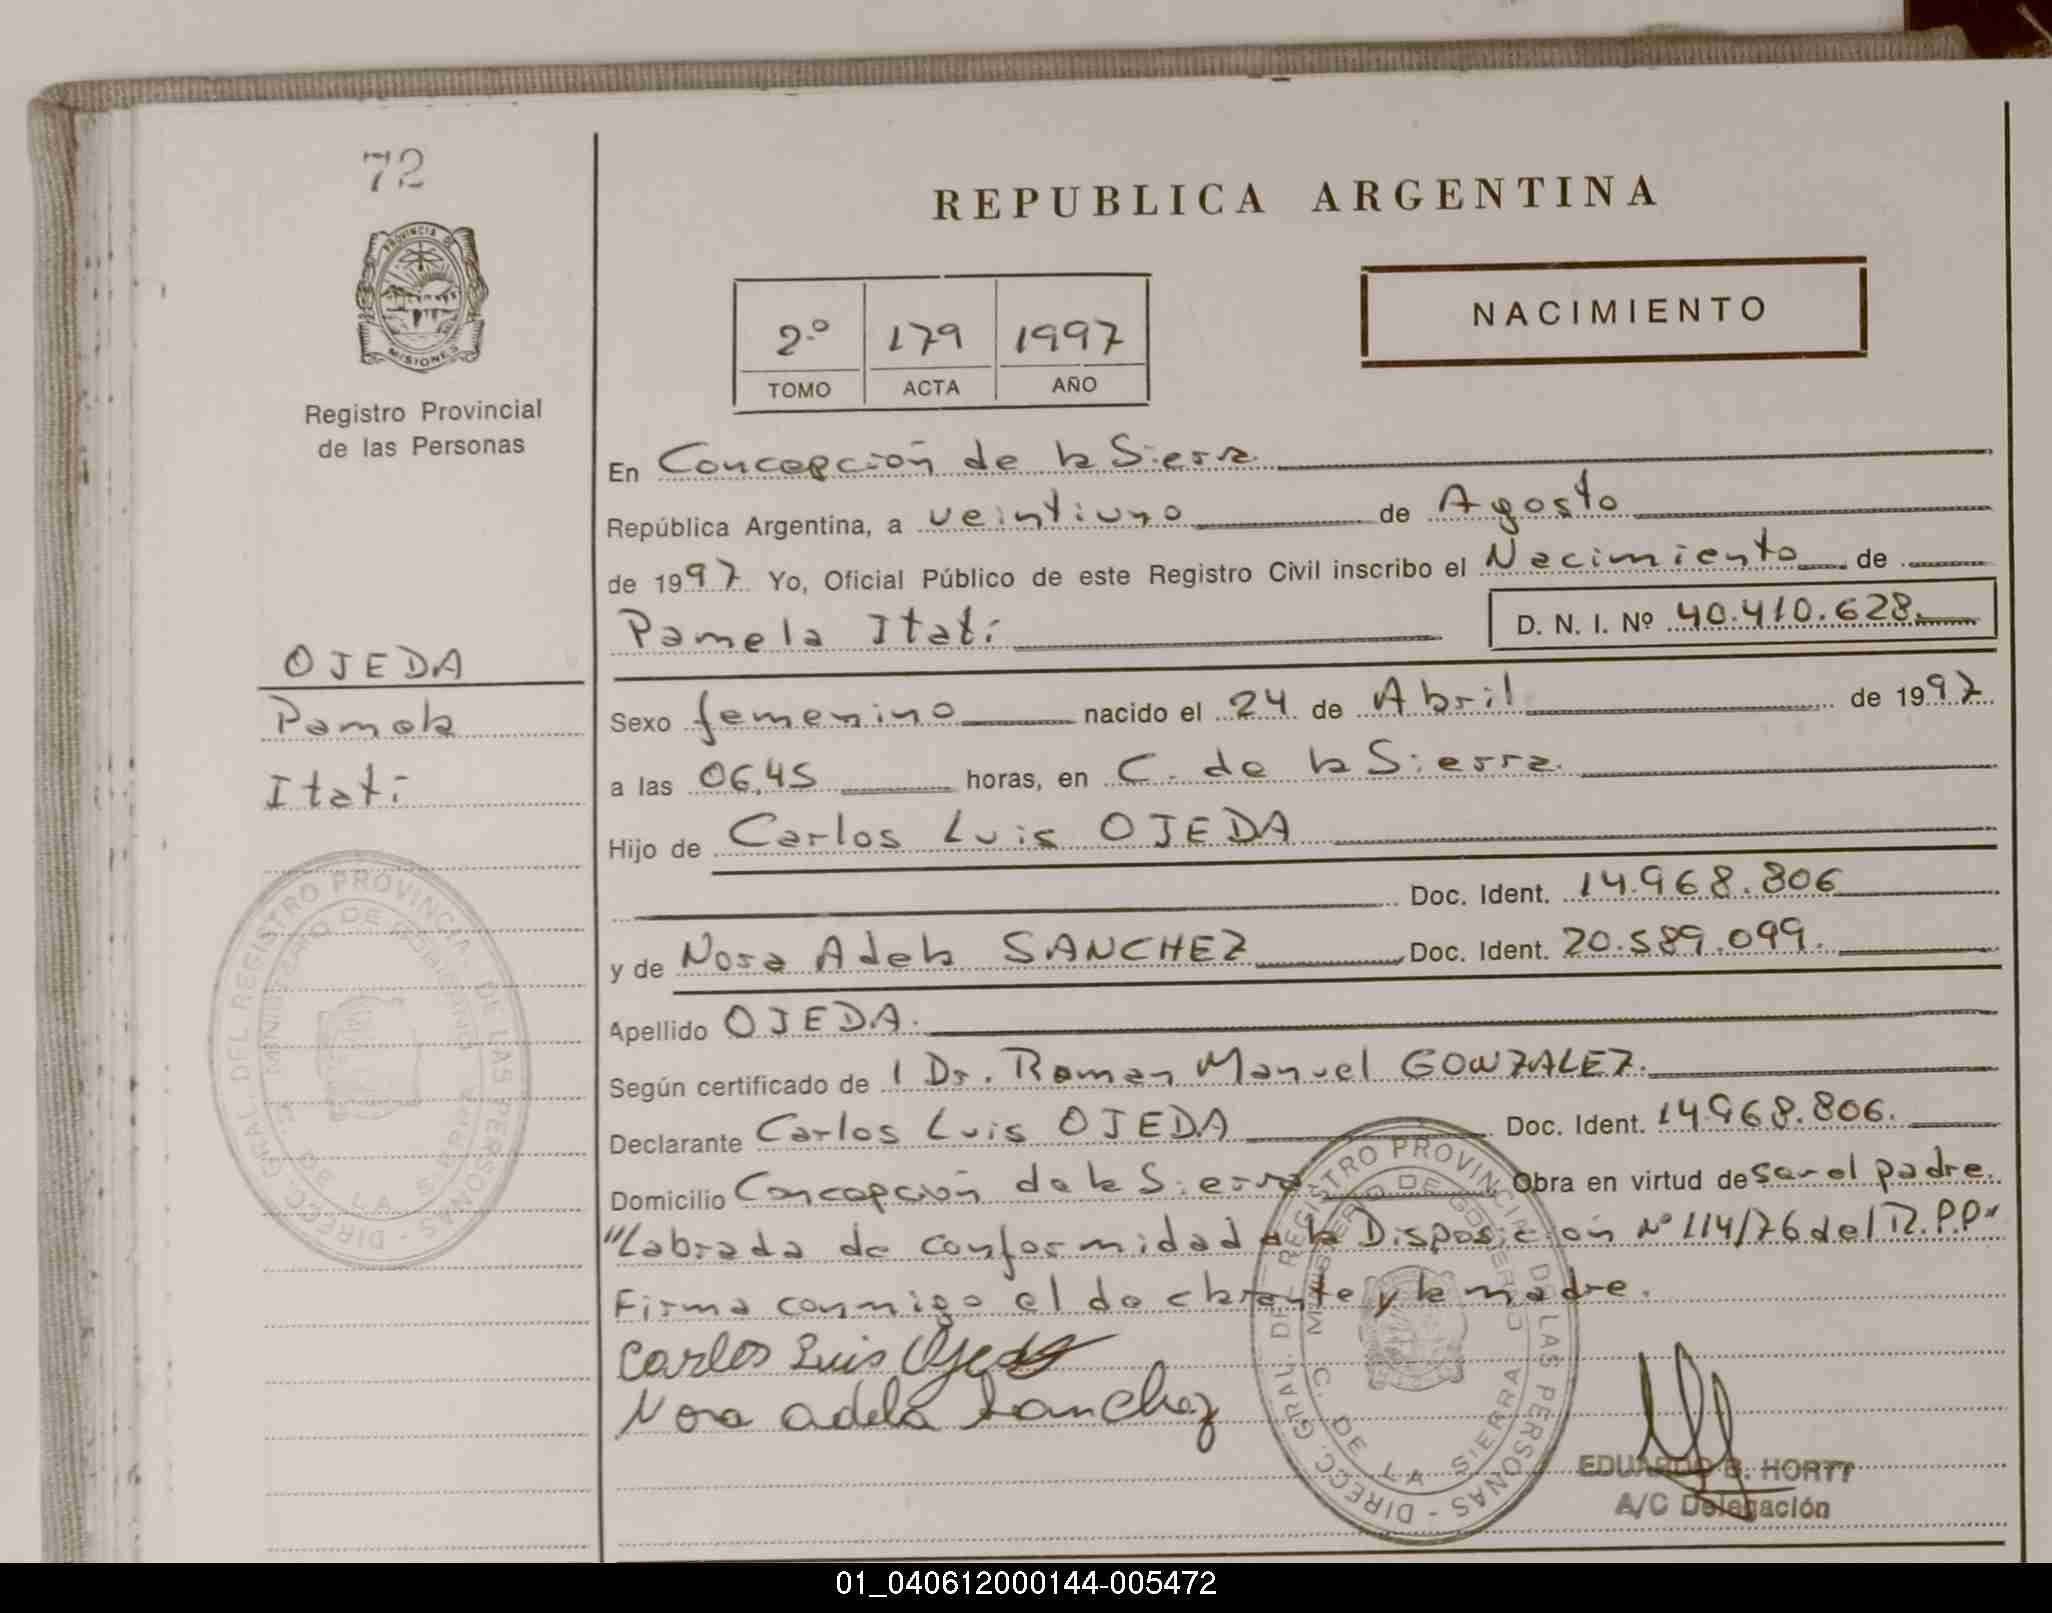 72
PROVINCIA DE
MISIONES
Registro Provincial
de las Personas
OJEDA
Pamela
Itatí
DIRECC. GRAL. DEL REGISTRO PROVINCIAL DE LAS PERSONAS
MINISTERIO DE GOBIERNO
C. DE LA SIERRA
REPUBLICA ARGENTINA
NACIMIENTO
2º 179 1997
TOMO ACTA AÑO
En Concepción de la Sierra
República Argentina, a veintiuno de Agosto
de 1997 Yo, Oficial Público de este Registro Civil inscribo el Nacimiento de
Pamela Itatí D. N. I. Nº 40.410.628.
Sexo femenino nacido el 24 de Abril de 1997
a las 06,45 horas, en C. de la Sierra.
Hijo de Carlos Luis OJEDA
Doc. Ident. 14.968.806
y de Nora Adela SANCHEZ Doc. Ident. 20.589.099.
Apellido OJEDA.
Según certificado de l Dr. Roman Manuel GONZALEZ.
Declarante Carlos Luis OJEDA Doc. Ident. 14.968.806.
Domicilio Concepción de la Sierra Obra en virtud de ser el padre.
"Labrada de conformidad a la Disposición Nº 114/76 del R.P.P"
Firma conmigo el declarante y la madre.
Carlos Luis Ojeda
Nora adela Sanchez
DIRECC. GRAL. DEL REGISTRO PROVINCIAL DE LAS PERSONAS
MINISTERIO DE GOBIERNO
C. DE LA SIERRA
EDUARDO B. HORTT
A/C Delegación
01_040612000144-005472